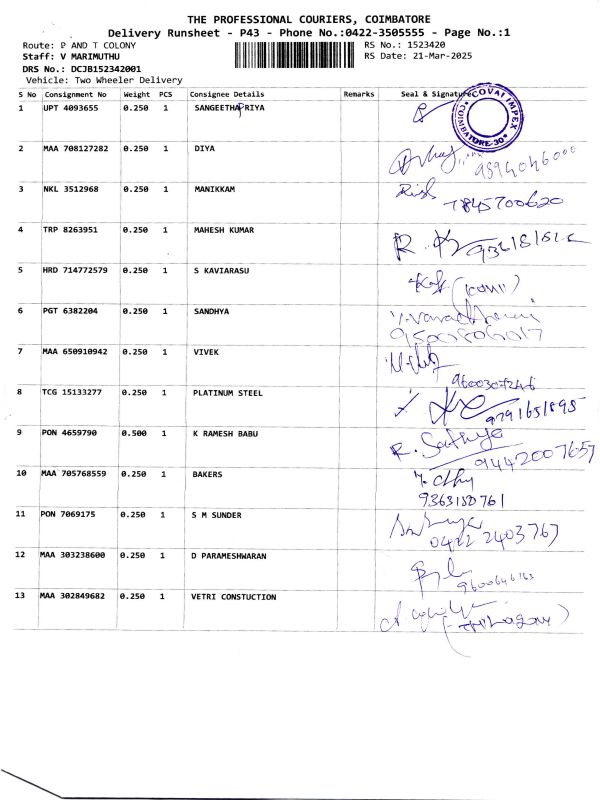 THE PROFESSIONAL COURIERS, COIMBATORE
Delivery Runsheet - P43 - Phone No.:0422-3505555 - Page No.:1
Route: P AND T COLONY RS No.: 1523420
Staff: V MARIMUTHU RS Date: 21-Mar-2025
DRS No.: DCJB152342001
Vehicle: Two Wheeler Delivery
S No Consignment No Weight PCS Consignee Details Remarks Seal & Signature
COVAI IMPEX
COIMBATORE-30
1 UPT 4093655 0.250 1 SANGEETHAPRIYA
2 MAA 708127282 0.250 1 DIYA
9894046000
3 NKL 3512968 0.250 1 MANIKKAM
7845700620
4 TRP 8263951 0.250 1 MAHESH KUMAR
5 HRD 714772579 0.250 1 S KAVIARASU
6 PGT 6382204 0.250 1 SANDHYA
7 MAA 650910942 0.250 1 VIVEK
9600307246
8 TCG 15133277 0.250 1 PLATINUM STEEL
9791651895
9 PON 4659790 0.500 1 K RAMESH BABU
R. Sathya
94442007657
10 MAA 705768559 0.250 1 BAKERS
9363150761
11 PON 7069175 0.250 1 S M SUNDER
0422 2403767
12 MAA 303238600 0.250 1 D PARAMESHWARAN
13 MAA 302849682 0.250 1 VETRI CONSTUCTION